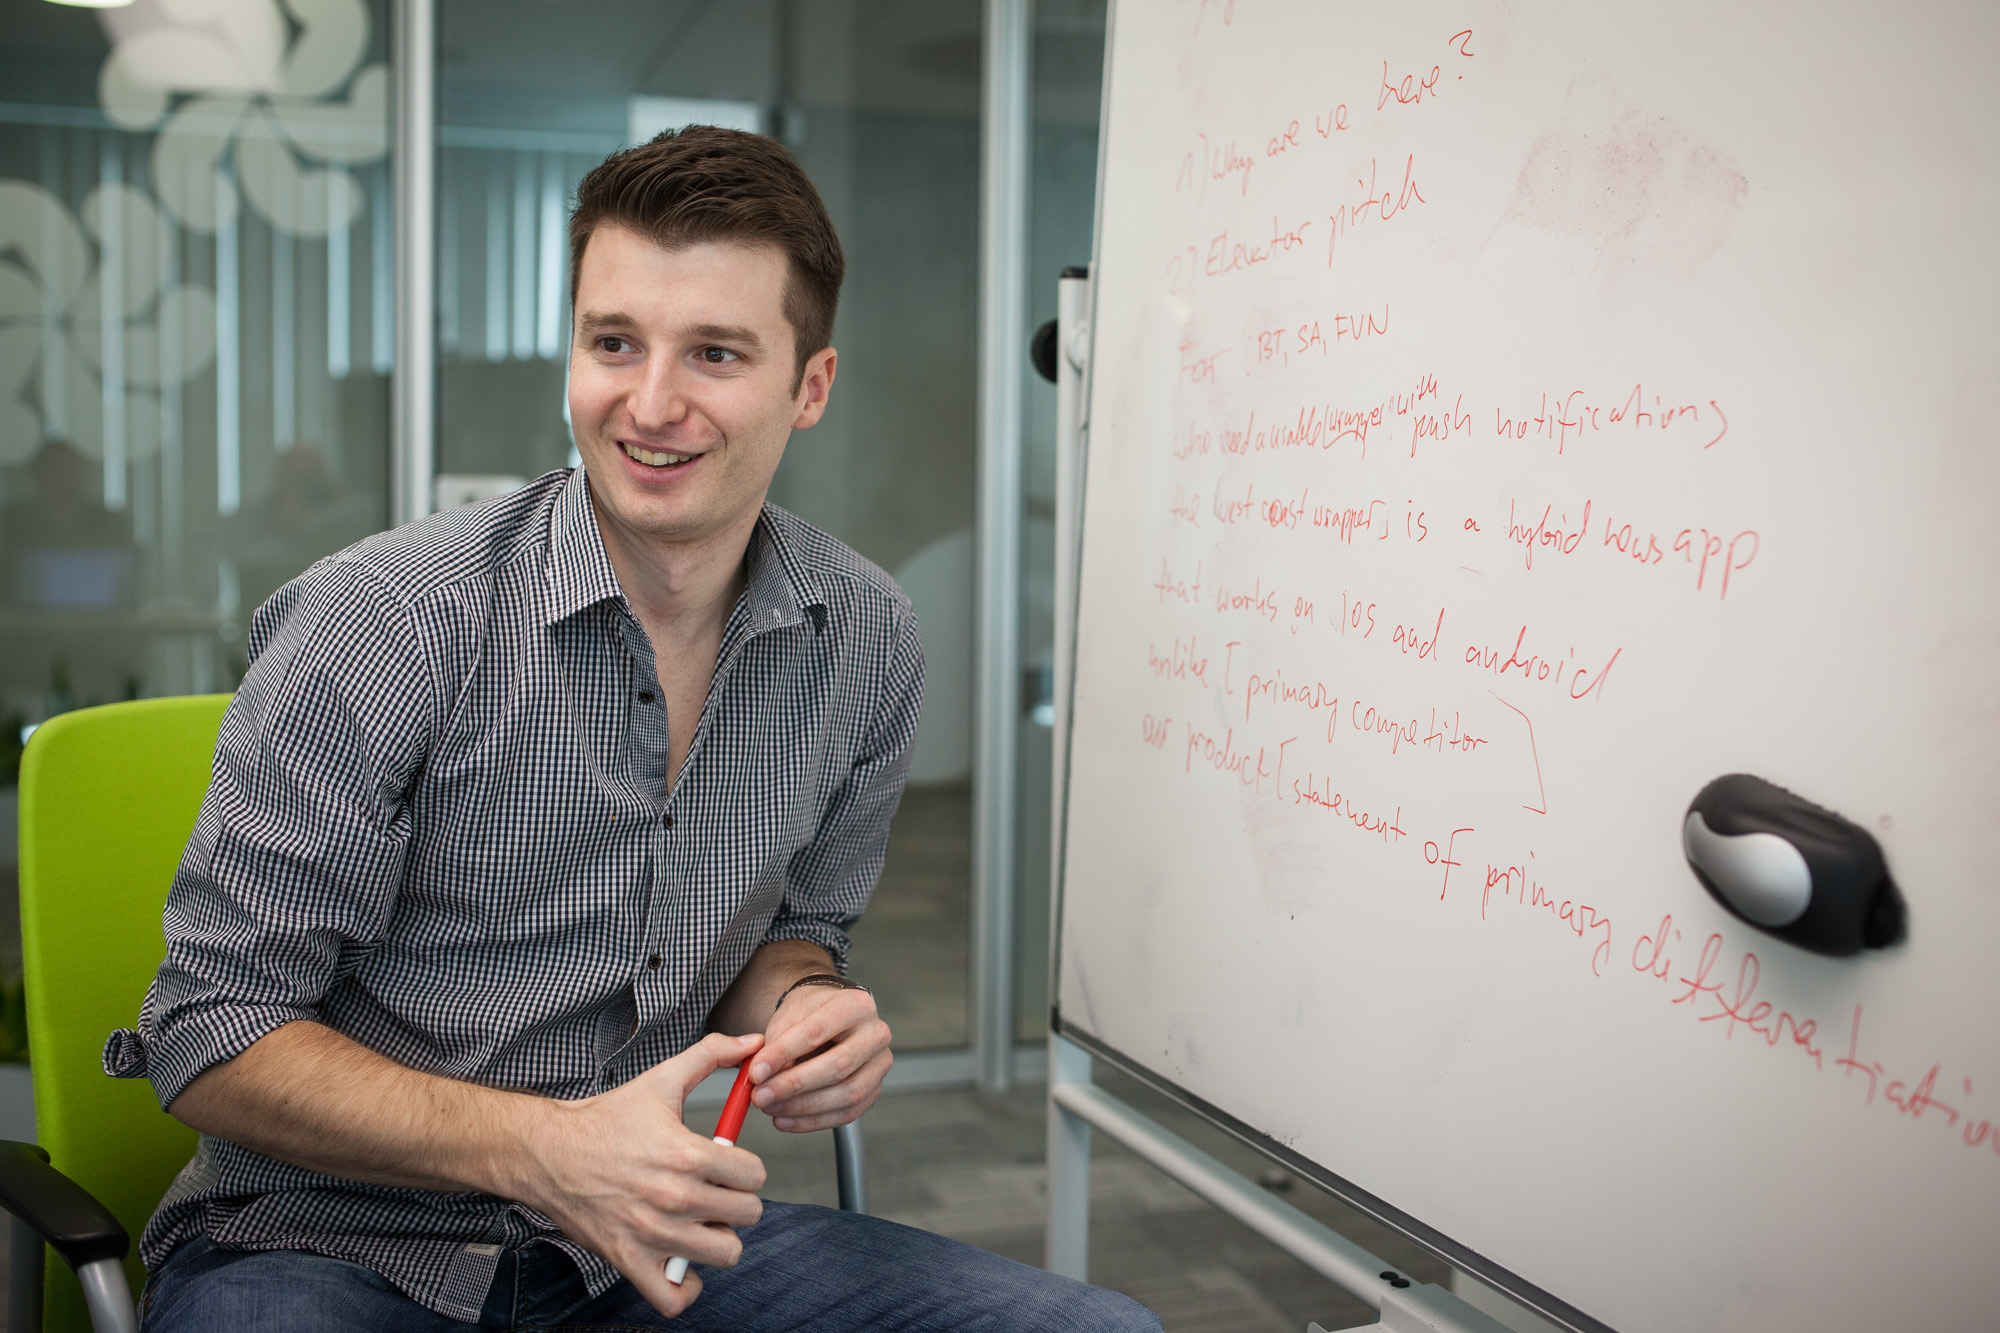 1) Why are we here?
2) Elevator pitch
For BT, SA, FVN
who need a usable [wrapper] with push notifications
the [west coast wrapper] is a hybrid news app
that works on iOS and android
unlike [primary competitor
our product [statement of primary differentiation